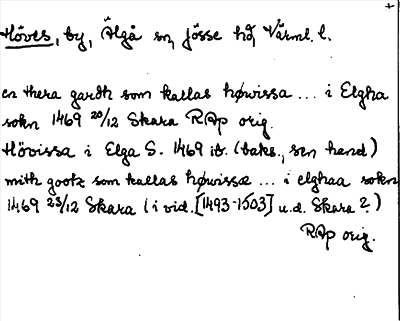 +
Höves, by, Älgå sn, Jösse hd, Värml. l.
en thera gardh som kallas høwissa ... i Elgha
sokn 1469 20/12 Skara RAp orig.
Hövissa i Elga S. 1469 ib. (baks., sen hand)
mith gootz som kallas høwissæ ... i elghaa sokn
1469 23/12 Skara (i vid. [1493-1503] u.d. Skara ?)
RAp orig.